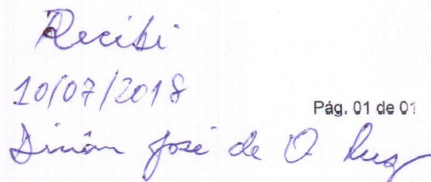 Recibi
10/07/2018
Pág. 01 de 01
José de O. Luz